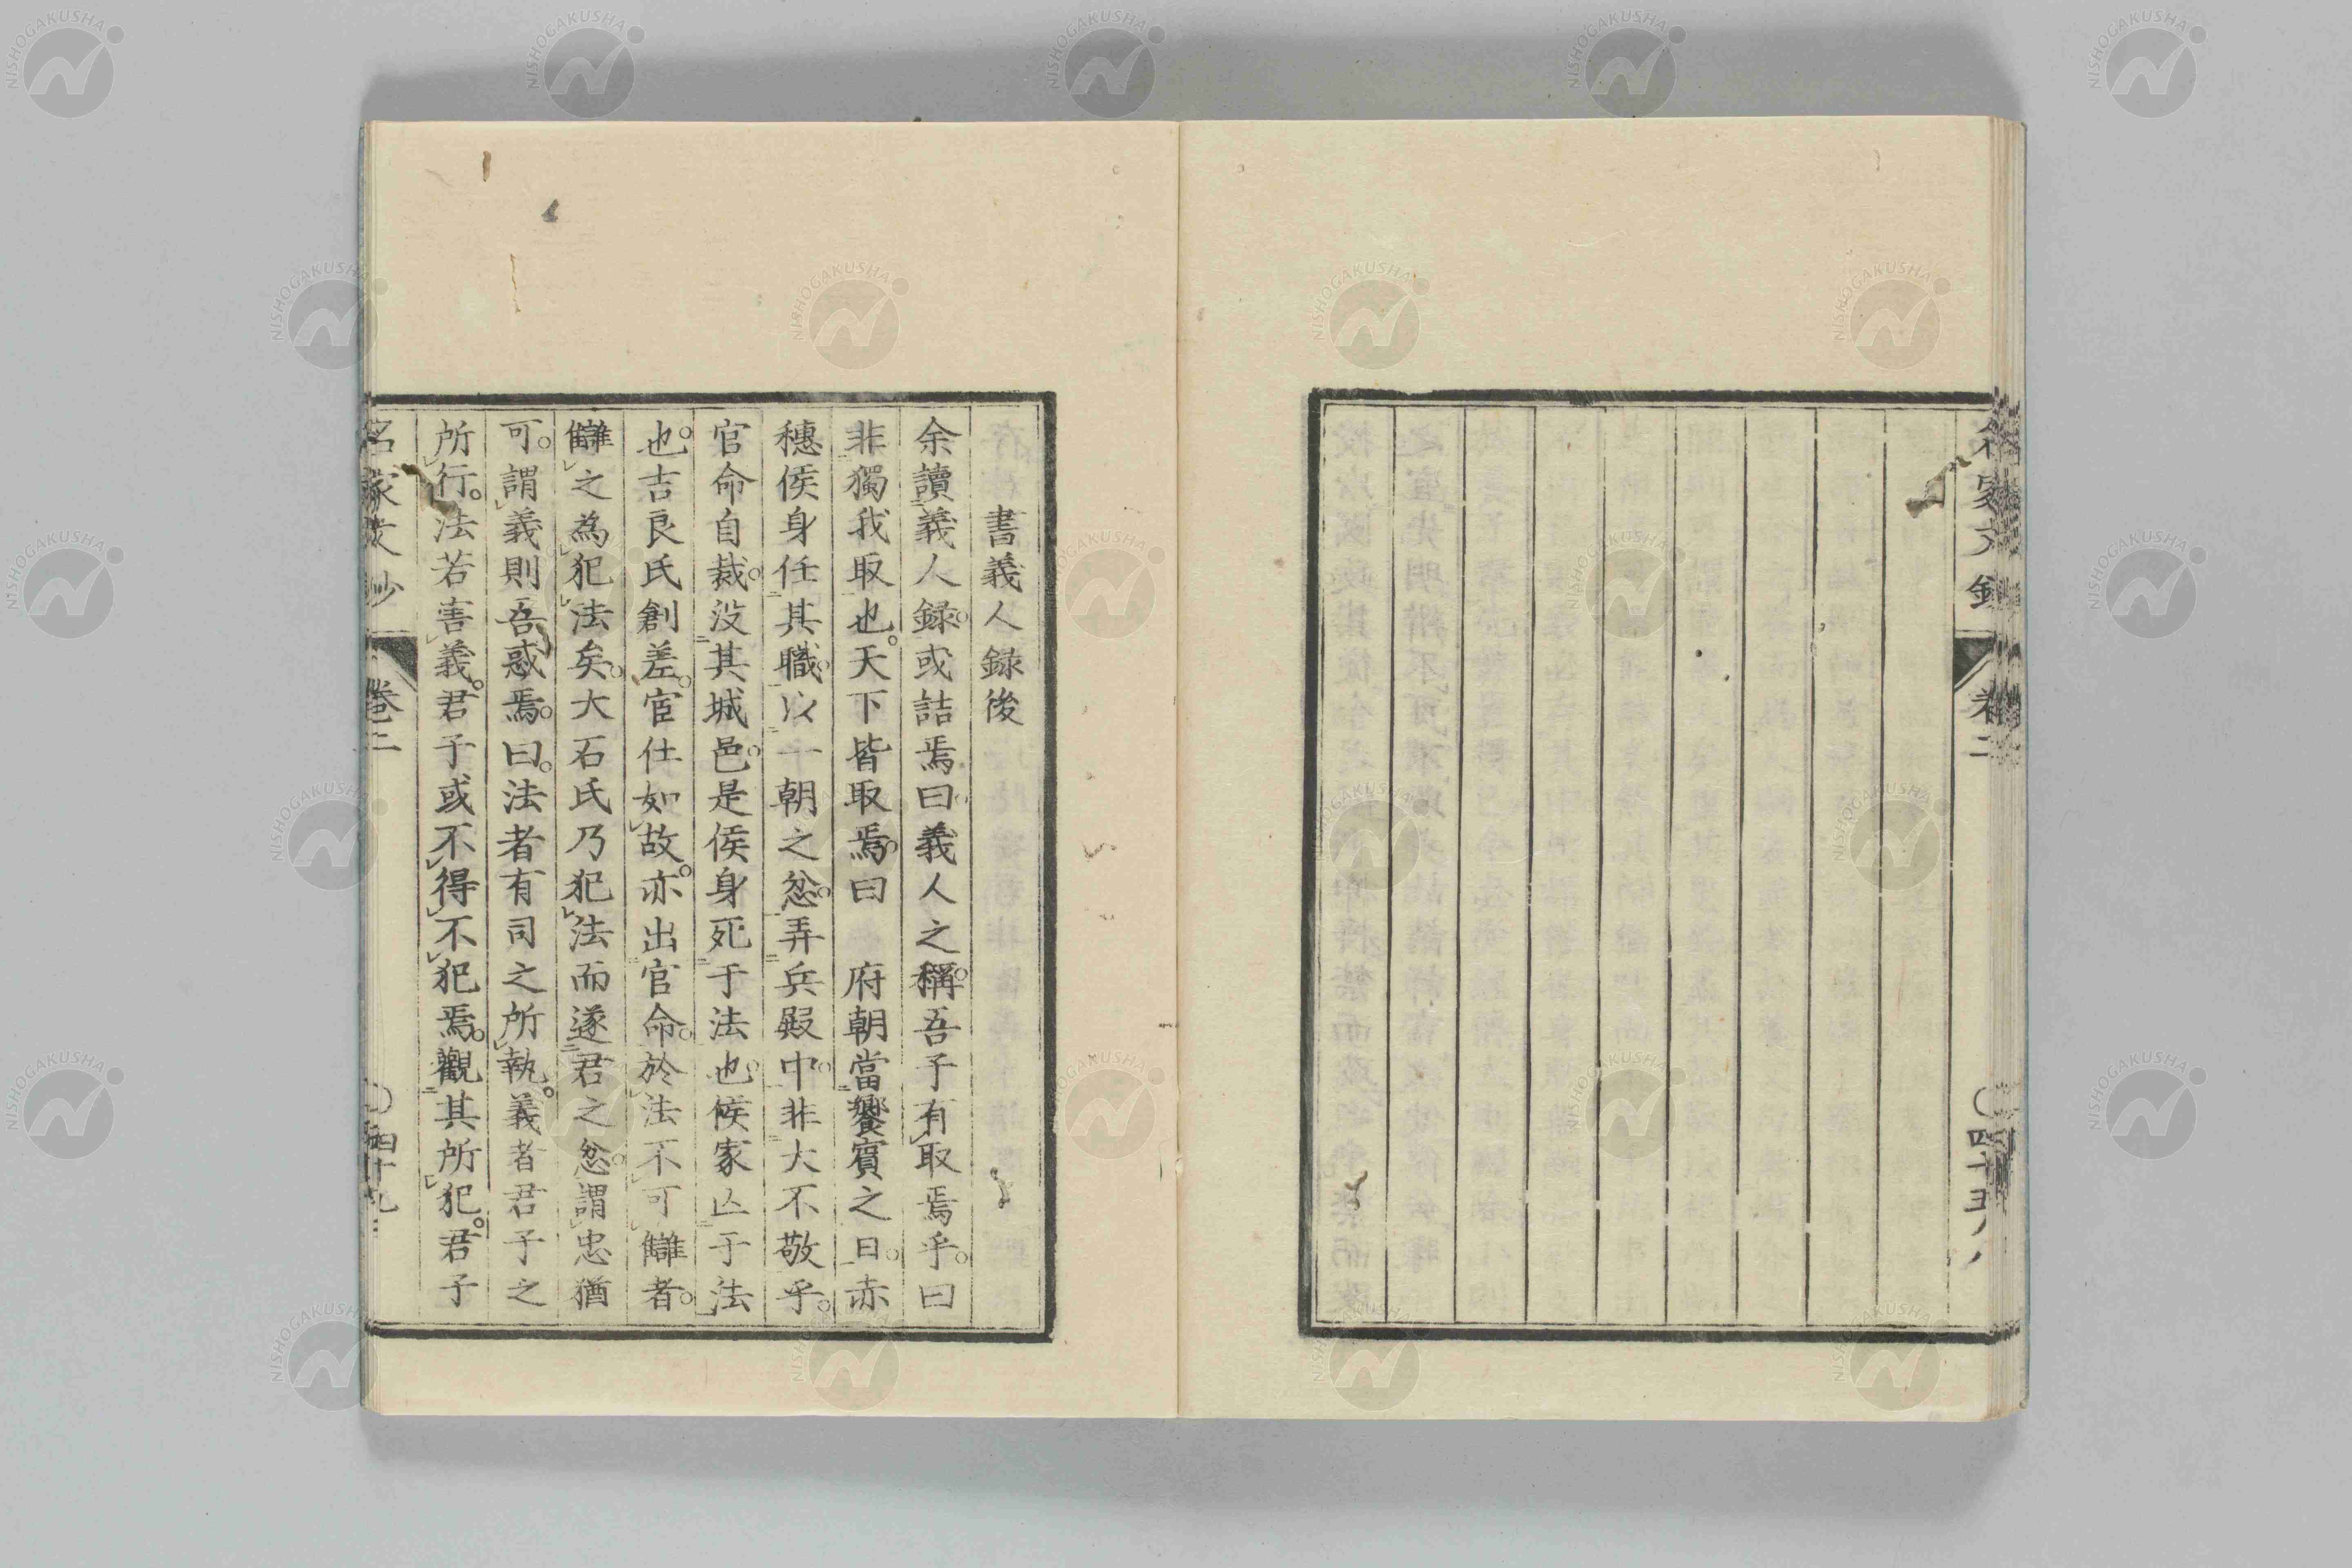 書義人録後
余讀義人録。或詰焉曰。義人之稱。吾子有取焉乎。曰
非獨我取也。天下皆取焉。曰 府朝當饗賓之日。赤
穗侯身任其職。以一朝之忿。弄兵殿中。非大不敬乎。
官命自裁。没其城邑。是侯身死于法也。候家亾于法
也。吉良氏創差。官仕如故。亦出官命。於法不可讎者。
讎之為犯法矣。大石氏乃犯法而遂君之忿。謂忠猶
可。謂義則吾惑焉。曰。法者有司之所執。義者君子之
所行。法若害義。君子或不得不犯焉。觀其所犯。君子
名家文抄 卷二 四十九
卷二
NISHOGAKUSHA